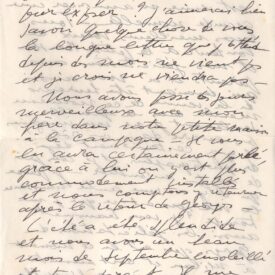 j'aimerais bien
savoir quelque chose de vous
la longue lettre que
depuis des mois ne vient pas
et je crois ne viendra pas
Nous avons passé des jours
merveilleux avec mon
père dans notre petite maison
à la campagne - Il vous
en aura certainement parlé
grâce à lui on y est plus
et nous comptons y retourner
après le retour de Georges
L'été a été splendide
et nous avons un beau
mois de Septembre ensoleillé